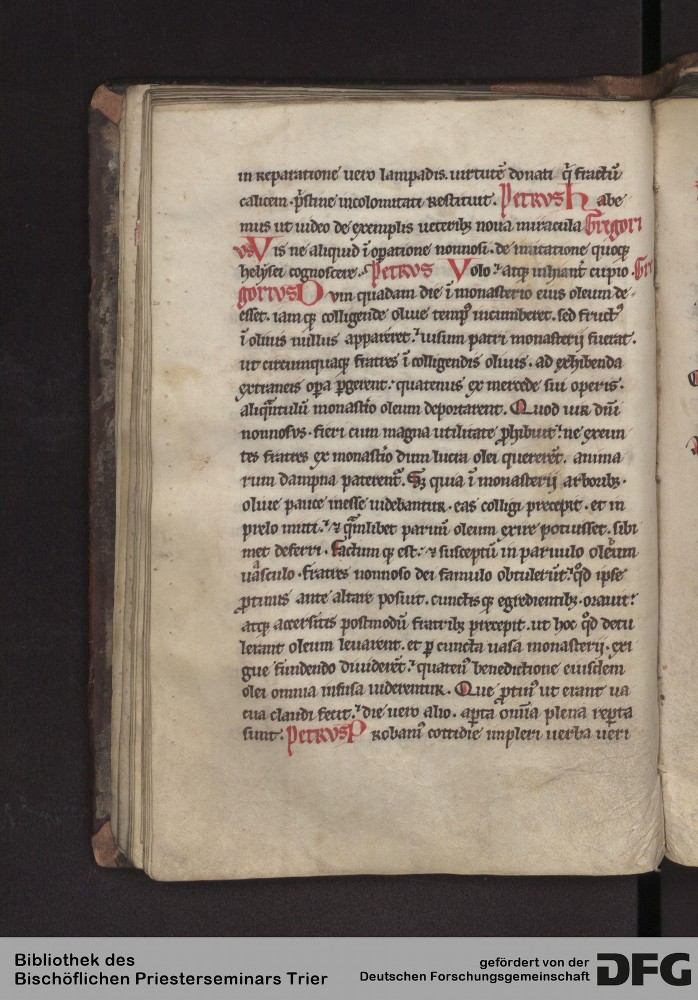 in reparatione uero lampadis. uirtutē donati q̄ fractū
calicem. p̄stine incolomitati restituit. Petrus Habe
mus ut uideo de exemplis ueterib; noua miracula Gregori
us Vis ne aliquid ī oꝑatione nonnosi. de imitatione quoq;
helysei cognoscere. Petrus Volo. atq; inhiant̄ cupio. Gre
gorius Dum quadam die ī monasterio eius oleum de
esset. iam q; colligende oliue temp' incumberet. sed fruct'
ī oliuis nullus appareret. uisum patri monasterij fuerat.
ut circumquaq; fratres ī colligendis oliuis. ad exhibenda
extraneis oꝑa ꝑgerent. quatenus ex mercede sui operis.
aliqntulū monastio oleum deportarent. Quod uir dn̄i
nonnosus. fieri cum magna utilitate ꝓhibuit. ne exeun
tes fratres ex monastio dum lucra olei quererēt. anima
rum dampna paterent̄. S; quia ī monasterij arborib;.
oliue pauce inesse uidebantur. eas colligi precepit. et in
prelo mitti. & qmlibet paruū oleum exire potuisset. sibi
met deferri. factum q; est. & susceptū in paruulo oleum
uasculo. fratres nonnoso dei famulo obtulerūt. qd ipse
ꝓtinus ante altare posuit. cunctis q; egredientib;. orauit.
atq; accersitis postmodū fratrib; precepit. ut hoc qd detu
lerant oleum leuarent. et ꝑ cuncta uasa monasterij. exi
gue fundendo diuiderēt. quaten' benedictione eiusdem
olei omnia infusa uiderentur. Que ꝓtin' ut erant ua
cua claudi fecit. die uero alio. aꝑta om̄ia plena reꝑta
sunt. Petrus Probam' cottidie impleri uerba ueri
Bibliothek des
Bischöflichen Priesterseminars Trier
gefördert von der
Deutschen Forschungsgemeinschaft DFG